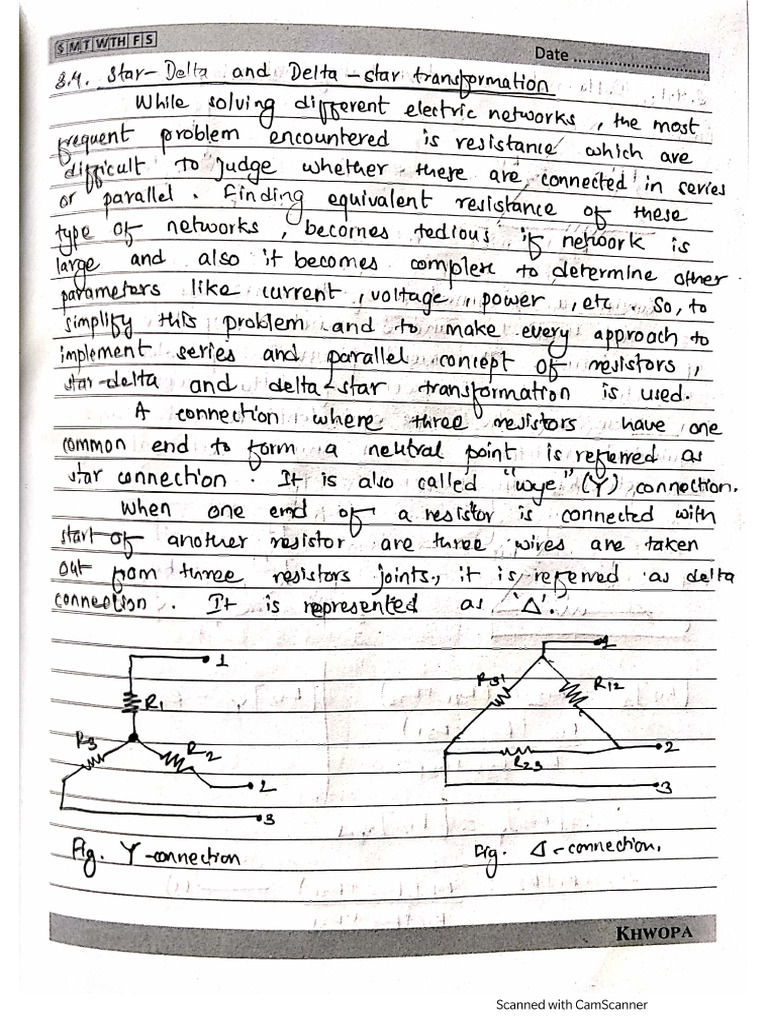 S M T W TH F S
Date
3.4. Star-Delta and Delta-star transformation
While solving different electric networks, the most
frequent problem encountered is resistance which are
difficult to judge whether these are connected in series
or parallel. Finding equivalent resistance of these
type of networks, becomes tedious if network is
large and also it becomes complex to determine other
parameters like current, voltage, power, etc. So, to
simplify this problem and to make every approach to
implement series and parallel concept of resistors,
star-delta and delta-star transformation is used.
A connection where three resistors have one
common end to form a neutral point is referred as
star connection. It is also called "wye" (Y) connection.
When one end of a resistor is connected with
start of another resistor are three wires are taken
out from three resistors joints, it is referred as delta
connection. It is represented as 'Δ'.
1
R1
R3
R2
2
3
Fig. Y-connection
1
R31
R12
2
R23
3
Fig. Δ-connection.
KHWOPA
Scanned with CamScanner